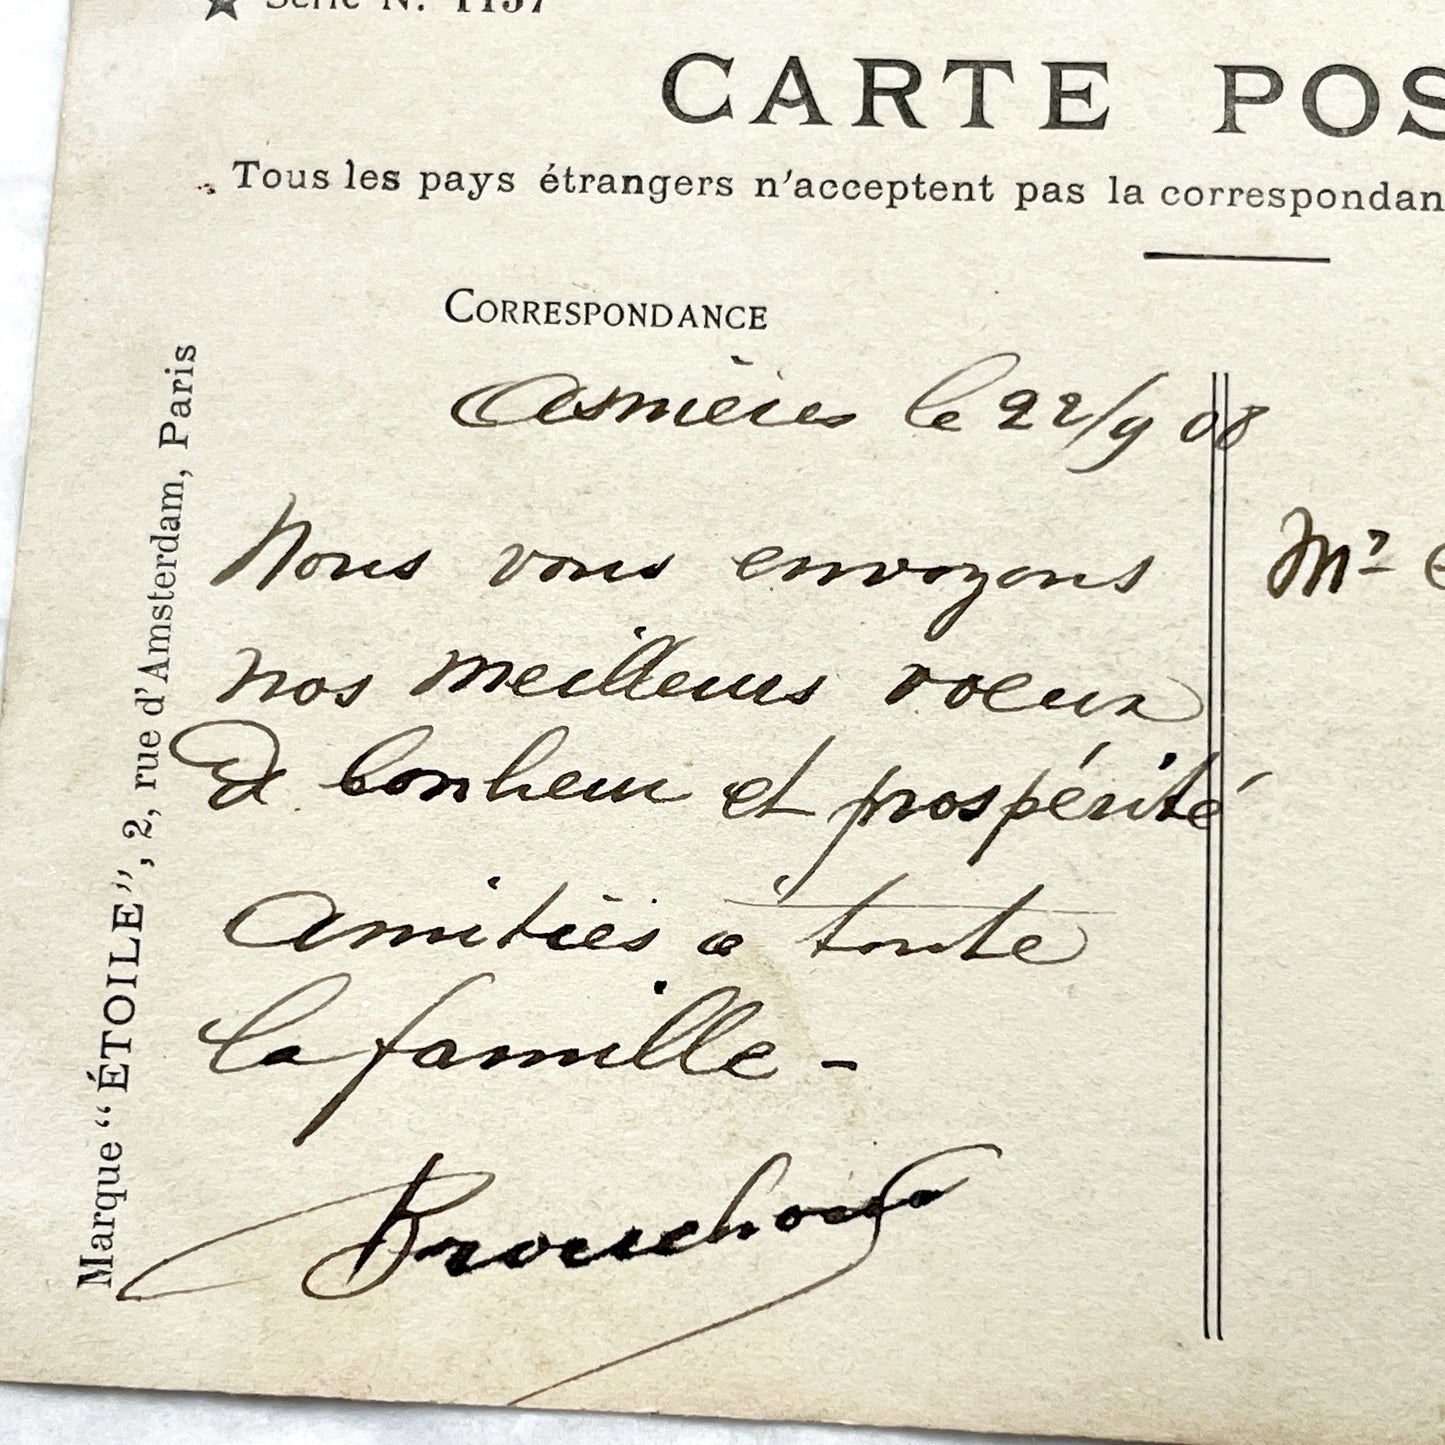 Série N. 1157
CARTE POS
Tous les pays étrangers n'acceptent pas la correspondan
CORRESPONDANCE
Asnières le 22/9 08
Nous vous envoyons
nos meilleurs voeux
de bonheur et prospérité
Amitiés à toute
la famille -
Mr
Marque "ÉTOILE", 2, rue d'Amsterdam, Paris